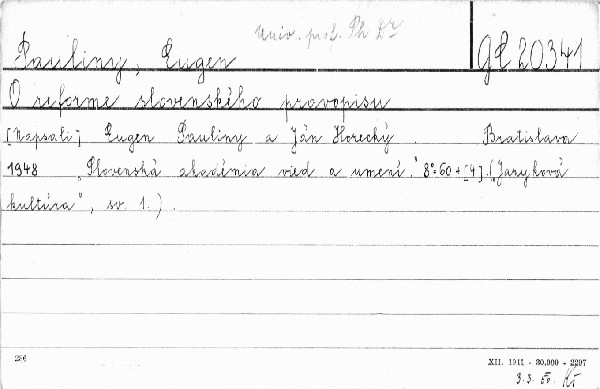 Univ. prof. Ph Dr
Pauliny, Eugen
GE 20341
O reforme slovenského pravopisu
[Napsali] Eugen Pauliny a Ján Horecký. Bratislava
1948 „Slovenská akadémia vied a umení.“ 8°. 60 + [4]. (Jazyková
kultúra“, sv. 1.).
286
XII. 1911 - 30,000 - 2297
3.3. 50. Kř